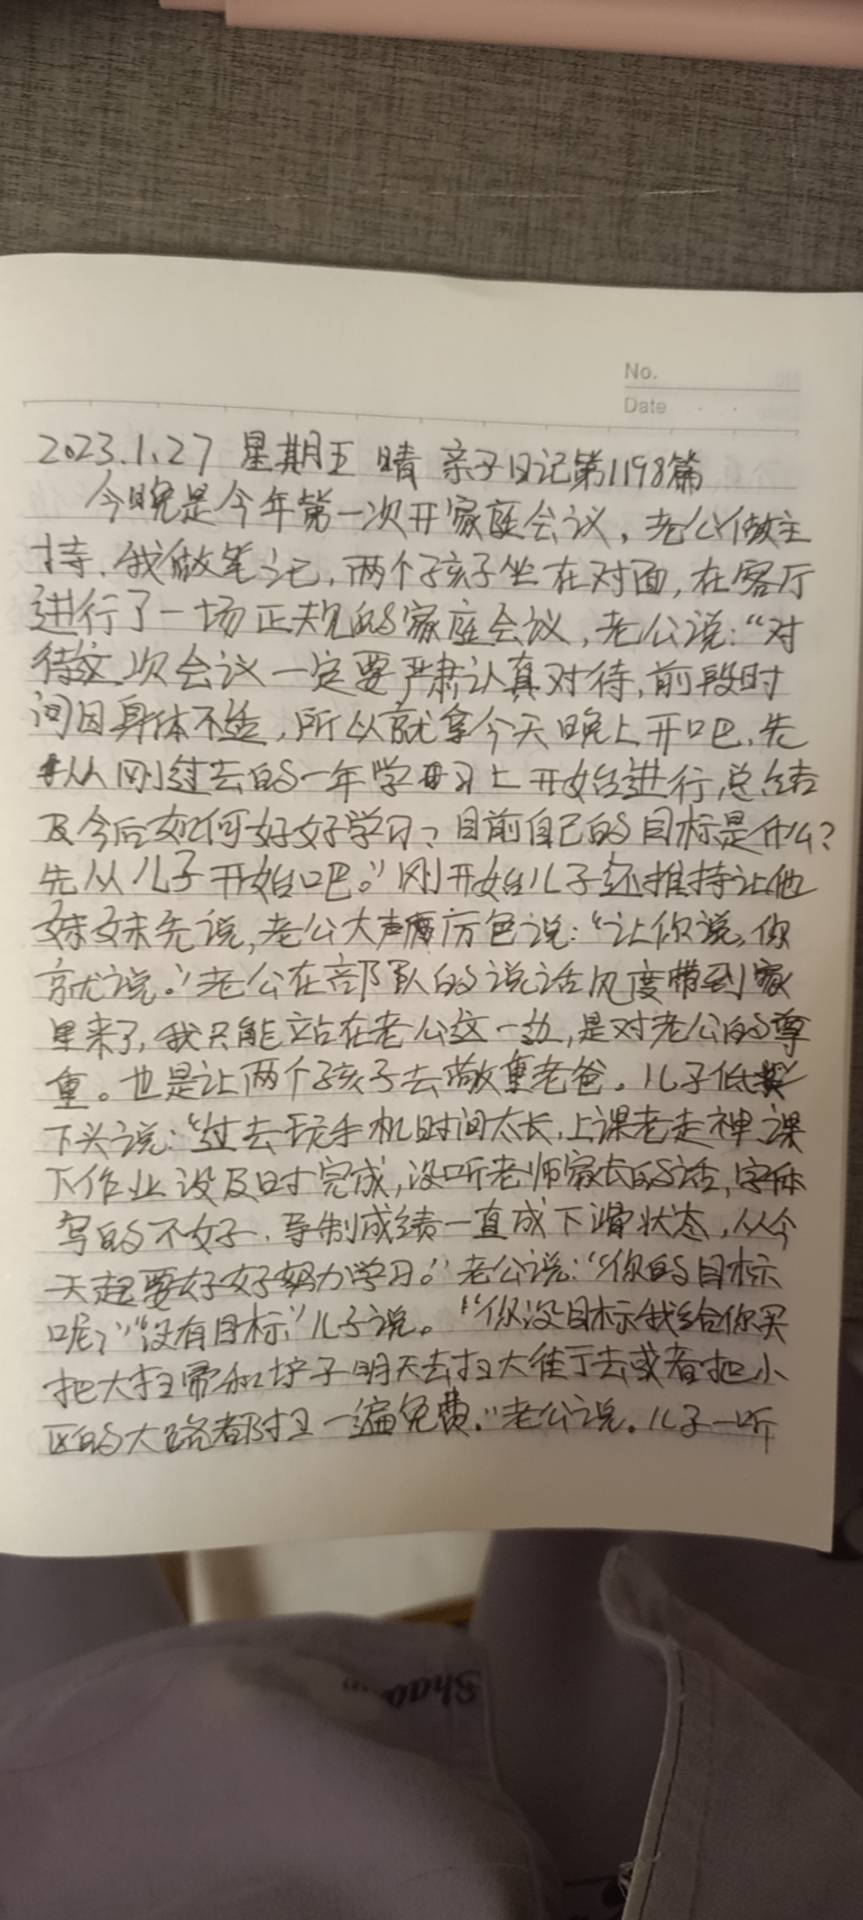 No.
Date
2023.1.27 星期五 晴 亲子日记第1198篇
今晚是今年第一次开家庭会议，老公做主
持，我做笔记，两个孩子坐在对面，在客厅
进行了一场正规的家庭会议，老公说：“对
待这次会议一定要严肃认真对待，前段时
间因身体不适，所以就拿今天晚上开吧，先
从刚过去的一年学习上开始进行，总结
及今后如何好好学习？目前自己的目标是什么？
先从儿子开始吧。”刚开始儿子还推持让他
妹妹先说，老公大声厉色说：“让你说，你
就说。”老公在部队的说话风度带到家
里来了，我只能站在老公这一边，是对老公的尊
重。也是让两个孩子去敬重老爸。儿子低
下头说：“过去玩手机时间太长，上课老走神，课
下作业没及时完成，没听老师家长的话，字体
写的不好，导制成绩一直成下滑状态，从今
天起要好好努力学习。”老公说：“你的目标
呢？”“没有目标，”儿子说。“你没目标我给你买
把大扫帚和铲子明天去扫大街去或者把小
区的大路都扫一遍免费。”老公说。儿子一听